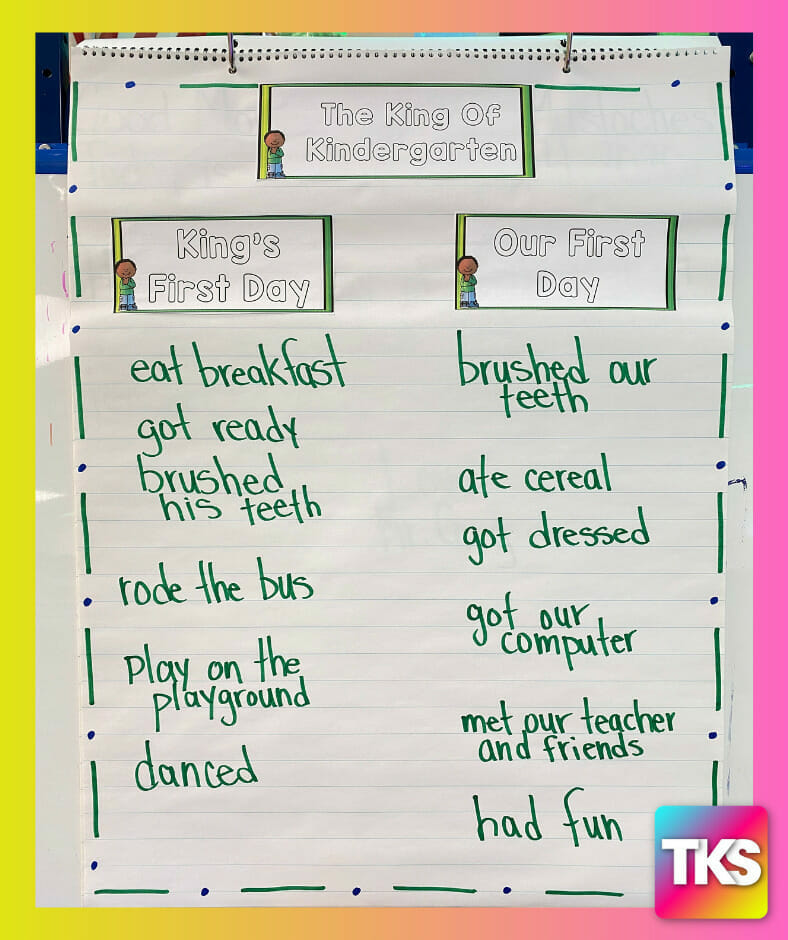 The King Of
Kindergarten
King's
First Day
eat breakfast
got ready
brushed
his teeth
rode the bus
play on the
playground
danced
Our First
Day
brushed our
teeth
ate cereal
got dressed
got our
computer
met our teacher
and friends
had fun
TKS